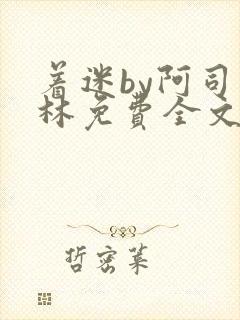 着迷by阿司
林免费全文
哲密莱